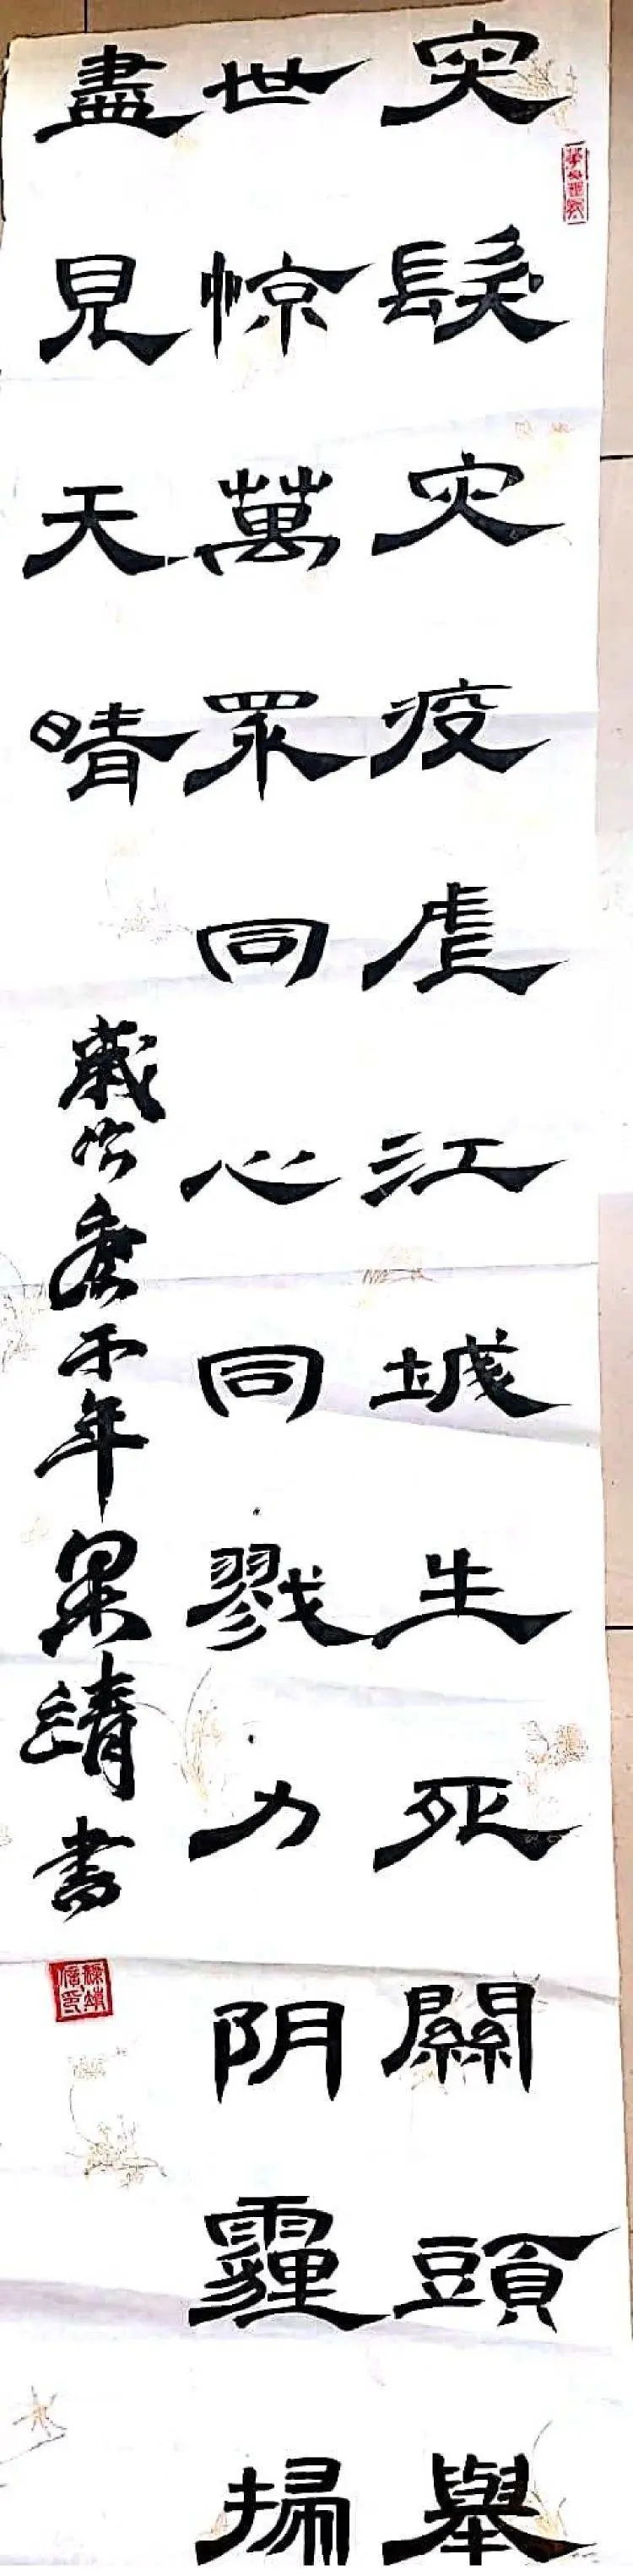 突髮灾疫虐江城生死關頭舉
世惊萬眾同心同戮力阴霾掃
盡見天晴
歲次庚子年梁靖書